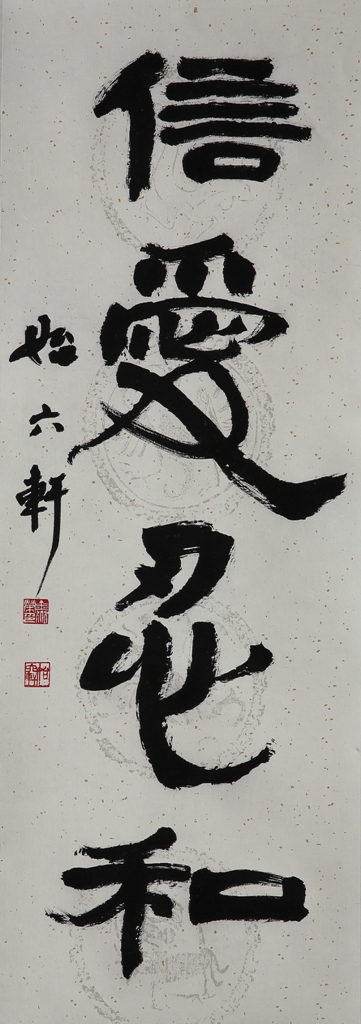 信愛忍和
始六軒